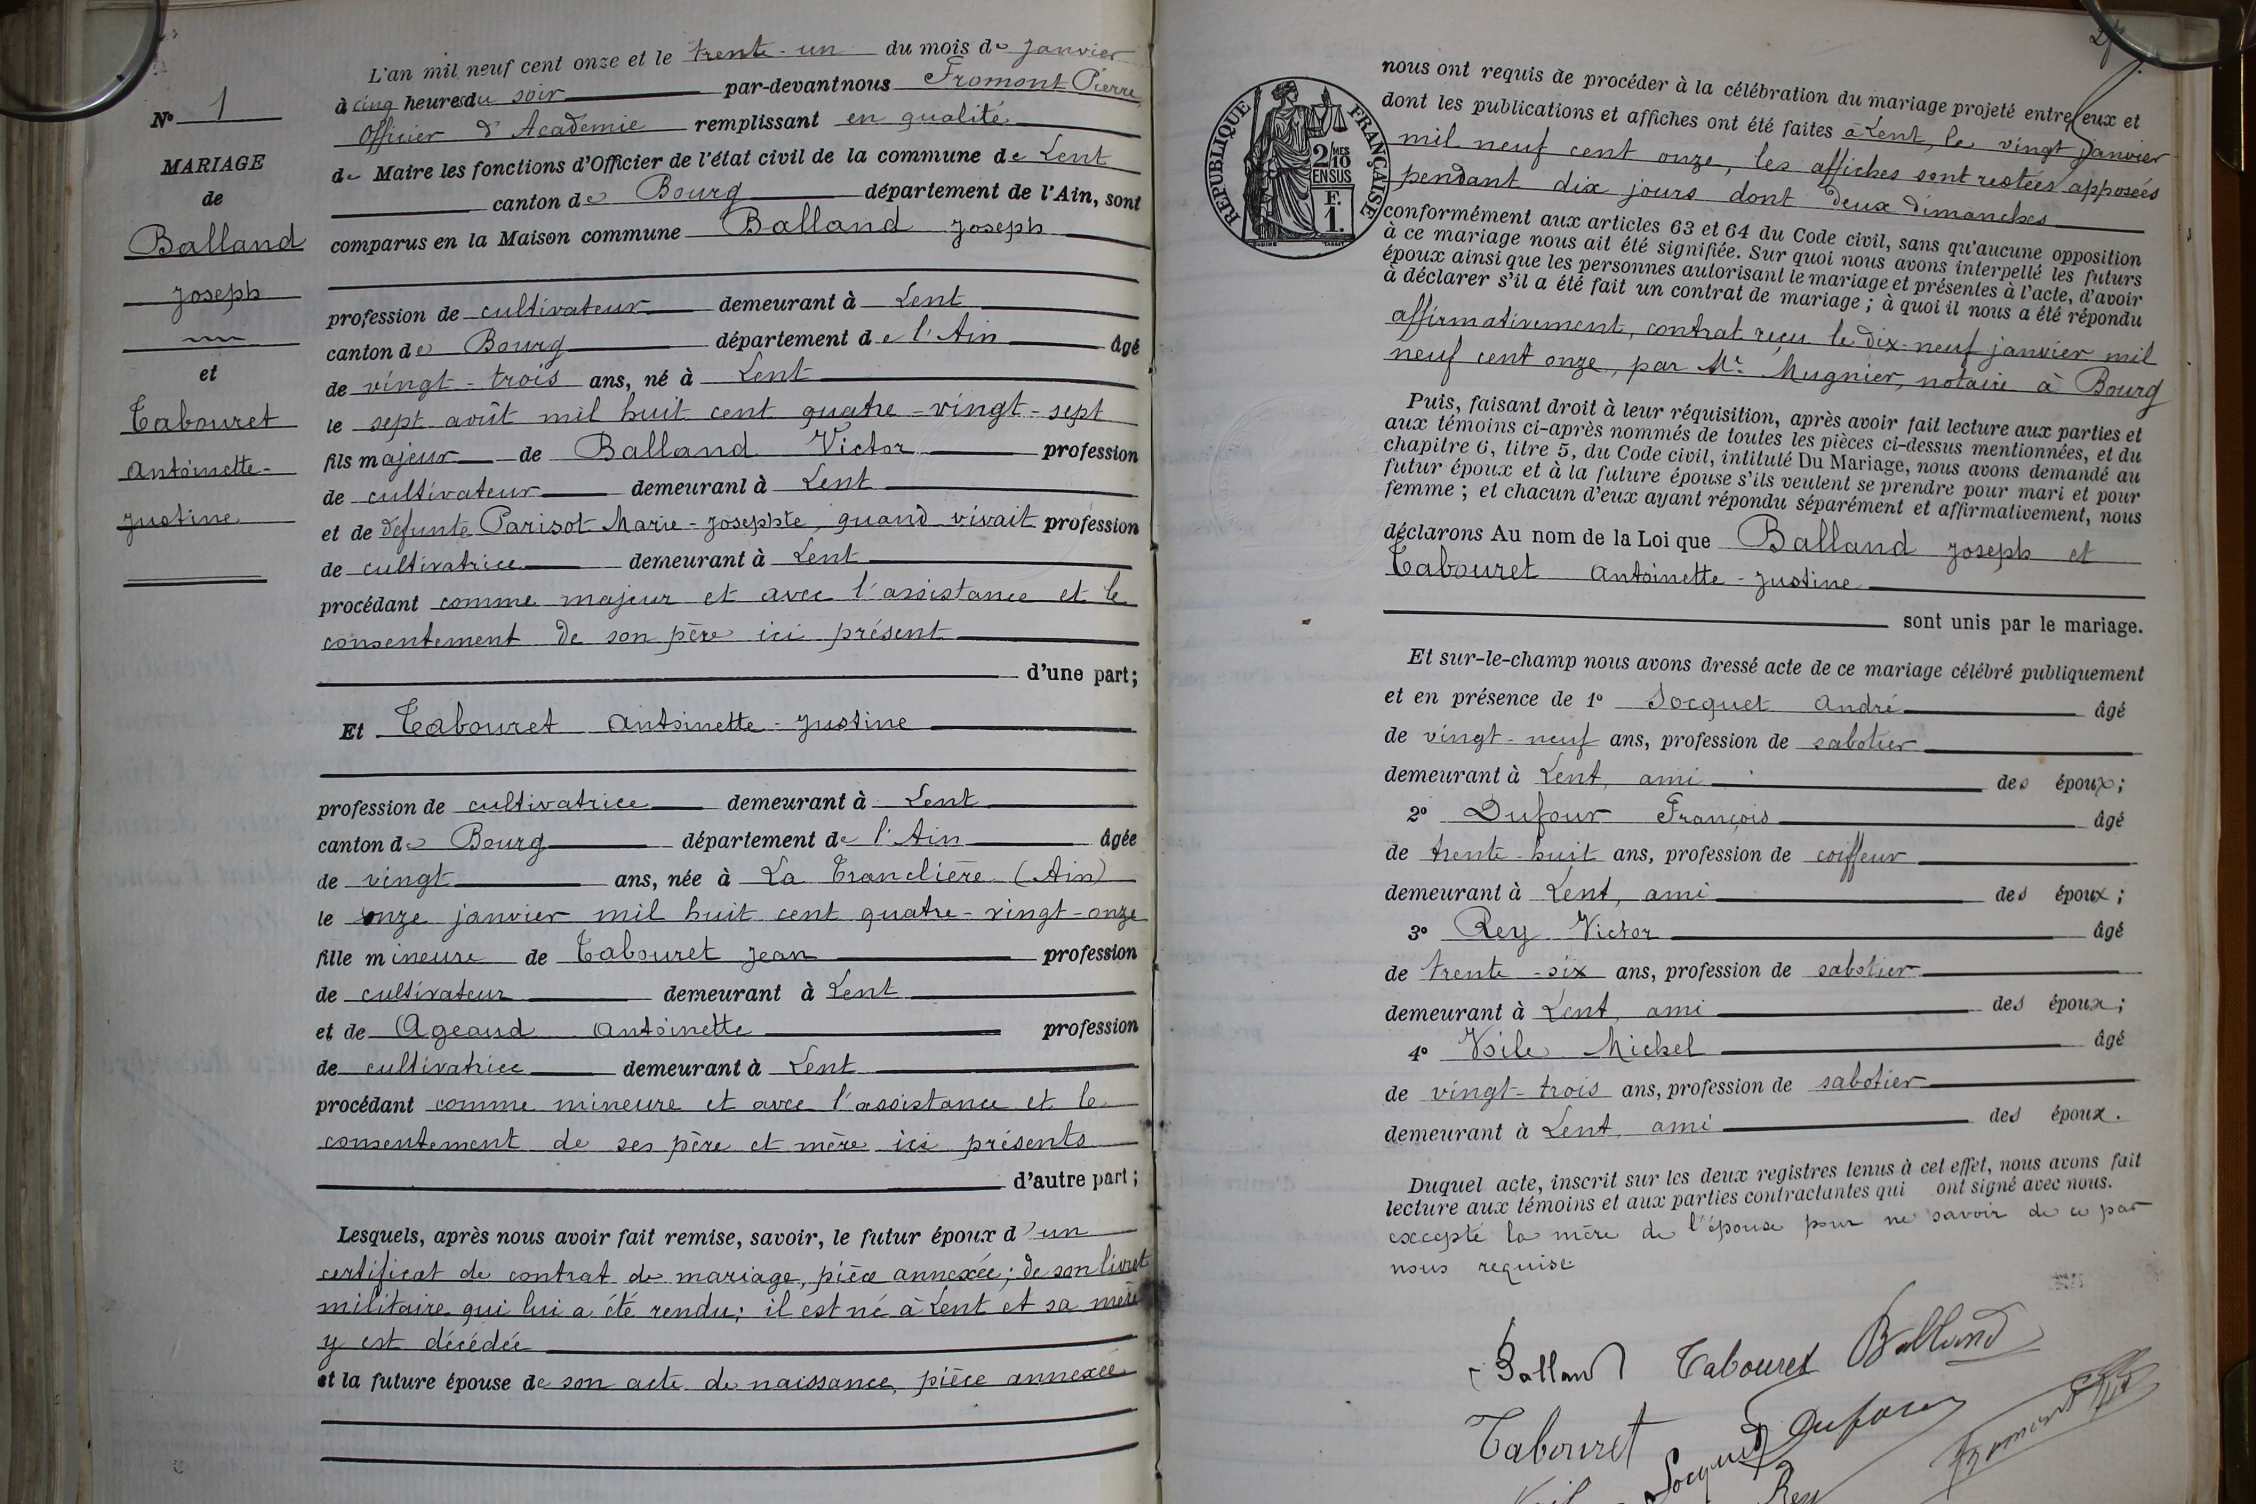 N° 1
MARIAGE
de
Balland
Joseph
et
Tabouret
Antoinette-
Justine
L'an mil neuf cent onze et le trente-un du mois de janvier
à cinq heures du soir par-devant nous Fromont Pierre,
Officier d'Académie remplissant en qualité
de Maire les fonctions d'Officier de l'état civil de la commune de Lent
canton de Bourg département de l'Ain, sont
comparus en la Maison commune Balland Joseph
profession de cultivateur demeurant à Lent
canton de Bourg département de l'Ain âgé
de vingt-trois ans, né à Lent
le sept août mil huit cent quatre-vingt-sept
fils majeur de Balland Victor profession
de cultivateur demeurant à Lent
et de défunte Parisot Marie-Josephte, quand vivait profession
de cultivatrice demeurant à Lent
procédant comme majeur et avec l'assistance et le
consentement de son père ici présent
d'une part;
Et Tabouret Antoinette-Justine
profession de cultivatrice demeurant à Lent
canton de Bourg département de l'Ain âgée
de vingt ans, née à La Tranclière (Ain)
le onze janvier mil huit cent quatre-vingt-onze
fille mineure de Tabouret Jean profession
de cultivateur demeurant à Lent
et de Ageaud Antoinette profession
de cultivatrice demeurant à Lent
procédant comme mineure et avec l'assistance et le
consentement de ses père et mère ici présents
d'autre part;
Lesquels, après nous avoir fait remise, savoir, le futur époux d'un
certificat de contrat de mariage, pièce annexée; de son livret
militaire qui lui a été rendu; il est né à Lent et sa mère
y est décédée
et la future épouse de son acte de naissance, pièce annexée
RÉPUBLIQUE FRANÇAISE
2/10 MES
EN SUS
F.
1.
nous ont requis de procéder à la célébration du mariage projeté entre eux et
dont les publications et affiches ont été faites à Lent, le vingt janvier
mil neuf cent onze, les affiches sont restées apposées
pendant dix jours dont deux dimanches
conformément aux articles 63 et 64 du Code civil, sans qu'aucune opposition
à ce mariage nous ait été signifiée. Sur quoi nous avons interpellé les futurs
époux ainsi que les personnes autorisant le mariage et présentes à l'acte, d'avoir
à déclarer s'il a été fait un contrat de mariage; à quoi il nous a été répondu
affirmativement, contrat reçu le dix-neuf janvier mil
neuf cent onze, par Me Mugnier, notaire à Bourg
Puis, faisant droit à leur réquisition, après avoir fait lecture aux parties et
aux témoins ci-après nommés de toutes les pièces ci-dessus mentionnées, et du
chapitre 6, titre 5, du Code civil, intitulé Du Mariage, nous avons demandé au
futur époux et à la future épouse s'ils veulent se prendre pour mari et pour
femme; et chacun d'eux ayant répondu séparément et affirmativement, nous
déclarons Au nom de la Loi que Balland Joseph et
Tabouret Antoinette-Justine
sont unis par le mariage.
Et sur-le-champ nous avons dressé acte de ce mariage célébré publiquement
et en présence de 1° Socquet André âgé
de vingt-neuf ans, profession de sabotier
demeurant à Lent, ami des époux;
2° Dufour François âgé
de trente-huit ans, profession de coiffeur
demeurant à Lent, ami des époux;
3° Rey Victor âgé
de trente-six ans, profession de sabotier
demeurant à Lent, ami des époux;
4° Voile Michel âgé
de vingt-trois ans, profession de sabotier
demeurant à Lent, ami des époux.
Duquel acte, inscrit sur les deux registres tenus à cet effet, nous avons fait
lecture aux témoins et aux parties contractantes qui ont signé avec nous.
excepté la mère de l'épouse pour ne savoir de ce par
nous requise
Balland Tabouret Balland
Tabouret Socquet Dufour Fromont
Rey